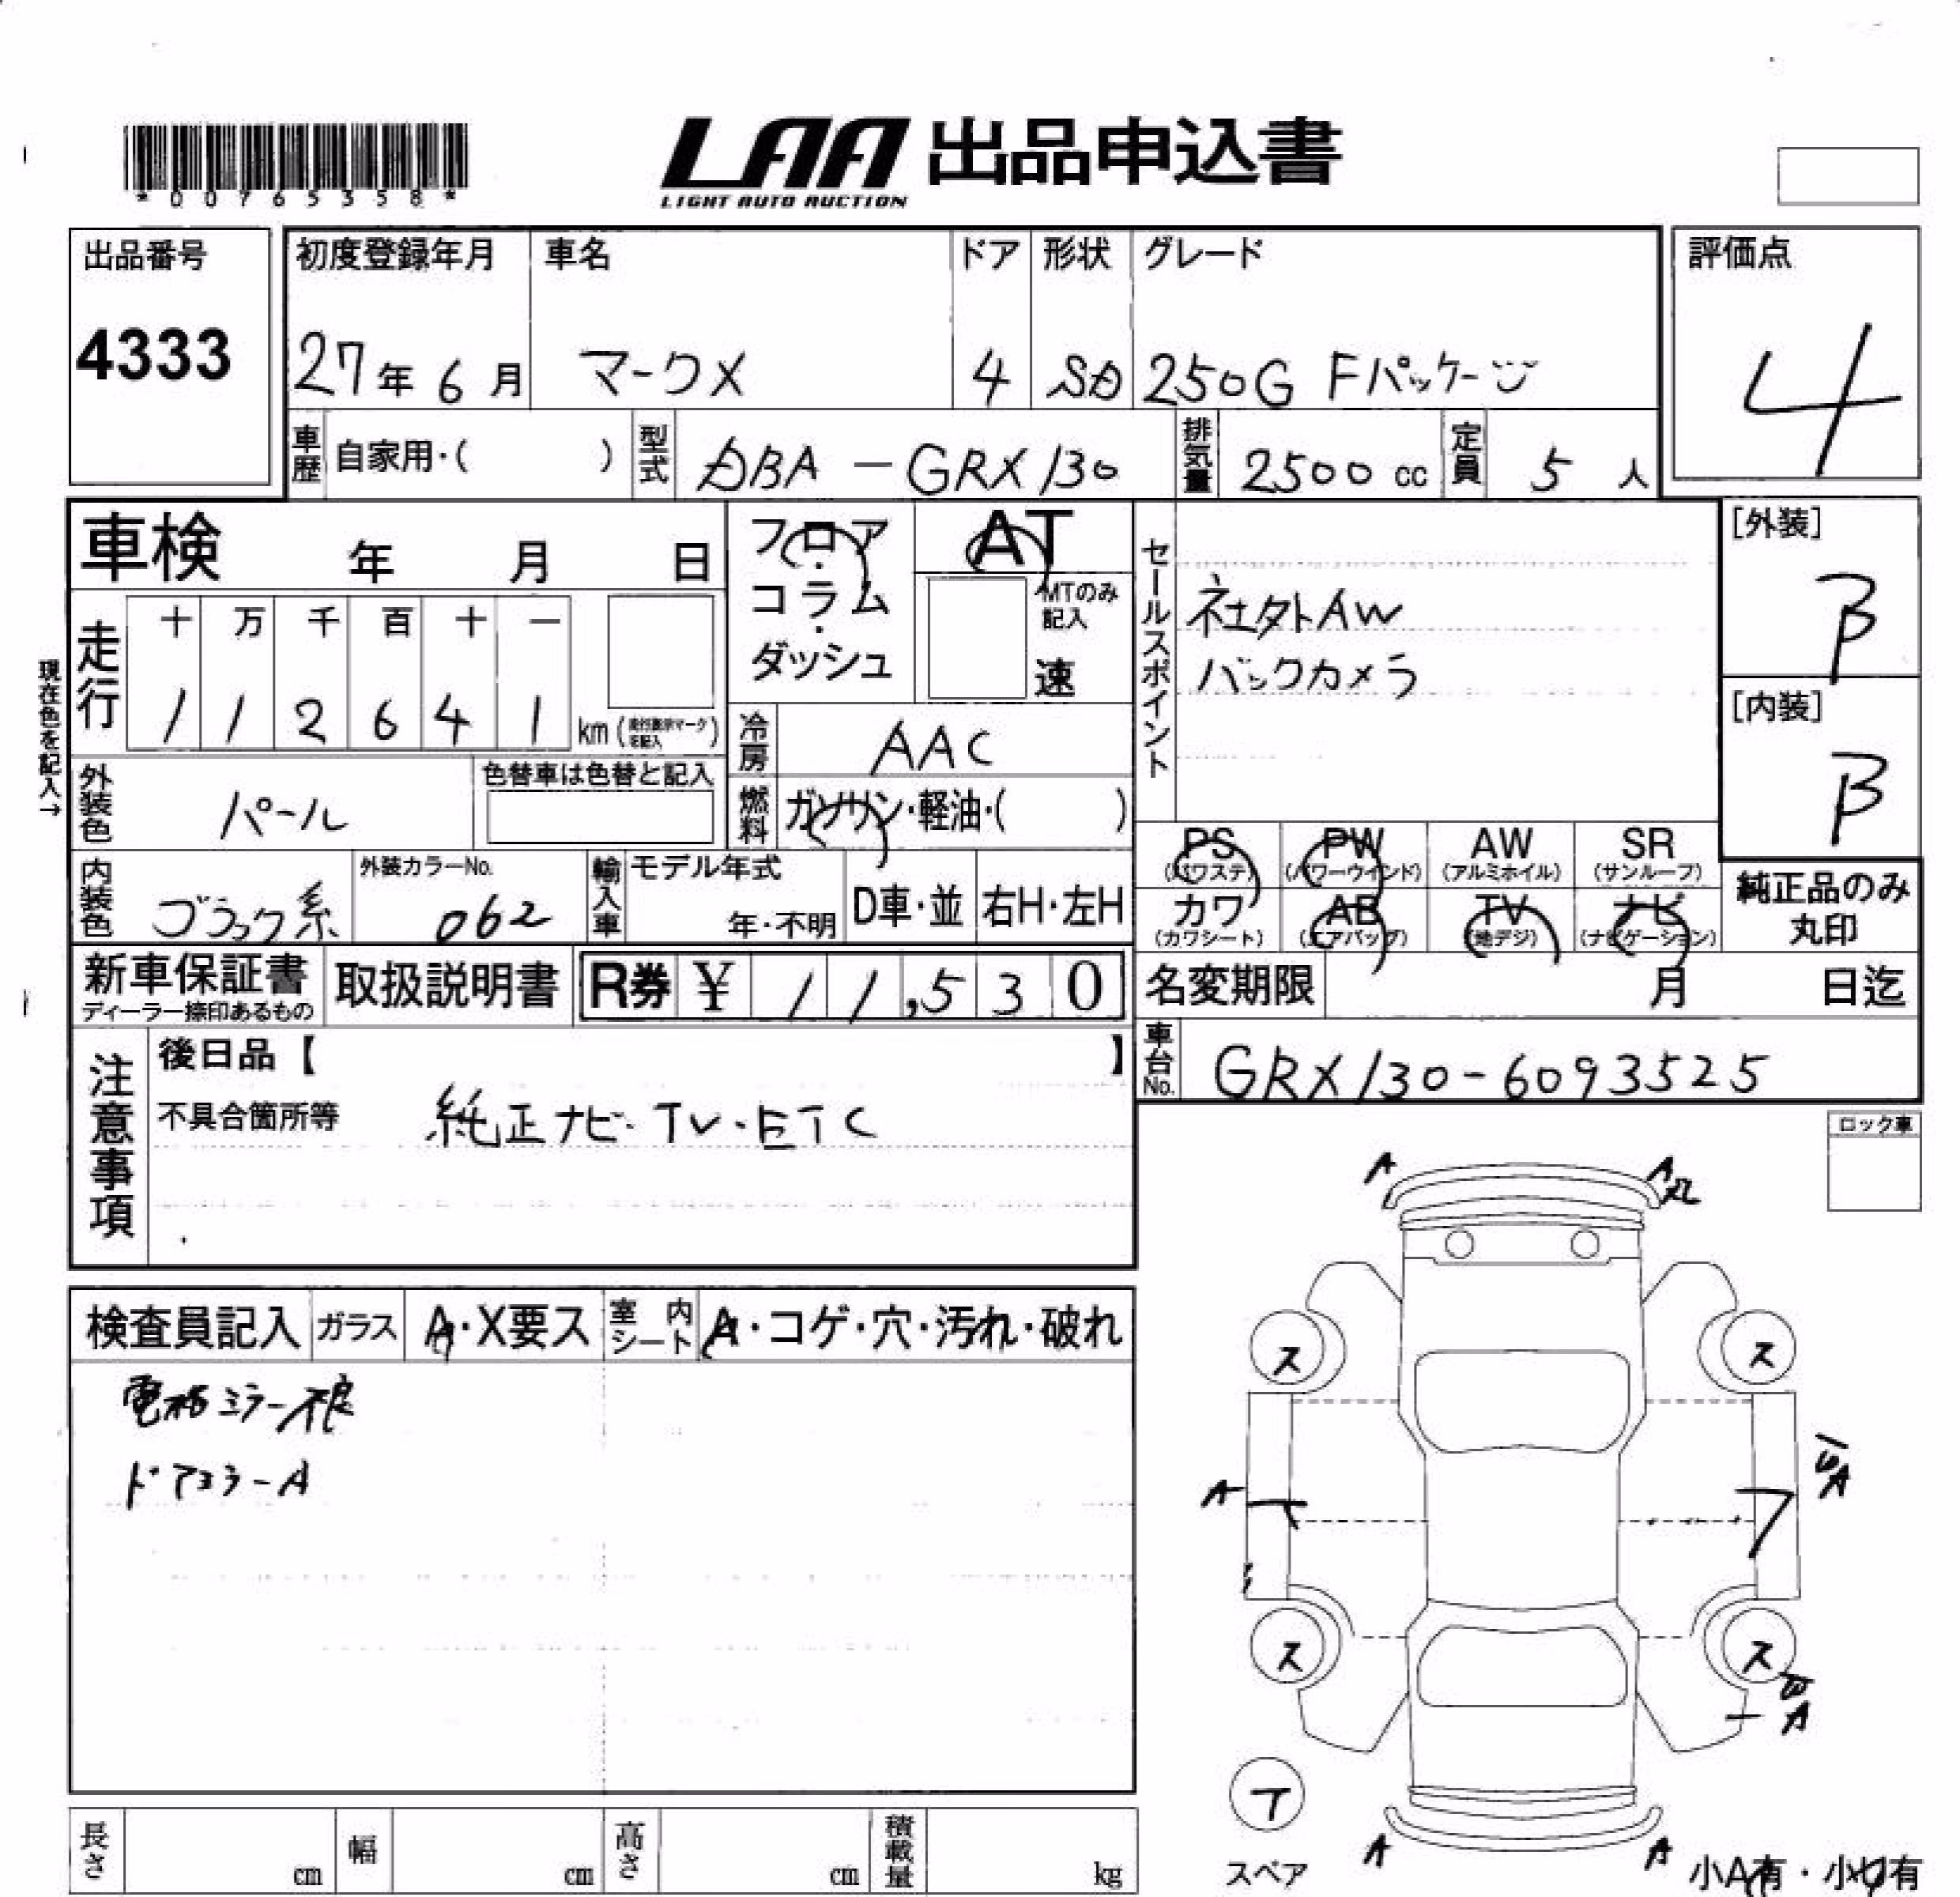 *00765358*
LAA 出品申込書
LIGHT AUTO AUCTION
出品番号
4333
初度登録年月 車名 ドア 形状 グレード
27年6月 マークX 4 SD 250G Fパッケージ
評価点
4
車歴 自家用・( ) 型式 DBA-GRX130 排気量 2500cc 定員 5人
車検 年 月 日
フロア・コラム・ダッシュ
AT
MTのみ記入
速
現在色を記入→
走行
十 万 千 百 十 一
1 1 2 6 4 1 km(走行表示マークを記入)
冷房 AAC
燃料 ガソリン・軽油・( )
外装色 パール
色替車は色替と記入
内装色 ブラック系
外装カラーNo.
062
輸入車 モデル年式
年・不明 D車・並 右H・左H
セールスポイント
社外AW
バックカメラ
[外装]
B
[内装]
B
PS (パワステ) PW (パワーウインド) AW (アルミホイル) SR (サンルーフ)
カワ (カワシート) AB (エアバッグ) TV (地デジ) ナビ (ナビゲーション)
純正品のみ
丸印
新車保証書
ディーラー捺印あるもの
取扱説明書
R券 ¥ 11,530
名変期限 月 日迄
車台No. GRX130-6093525
注意事項
後日品【 】
不具合箇所等 純正ナビ・TV・ETC
ロック車
検査員記入 ガラス A・X要ス 室内シート A・コゲ・穴・汚れ・破れ
電格ミラー不良
ドアミラーA
A
A
ス
ス
A
A
ス
ス
A
T
スペア
A
A
小A有・小U有
長さ cm 幅 cm 高さ cm 積載量 kg